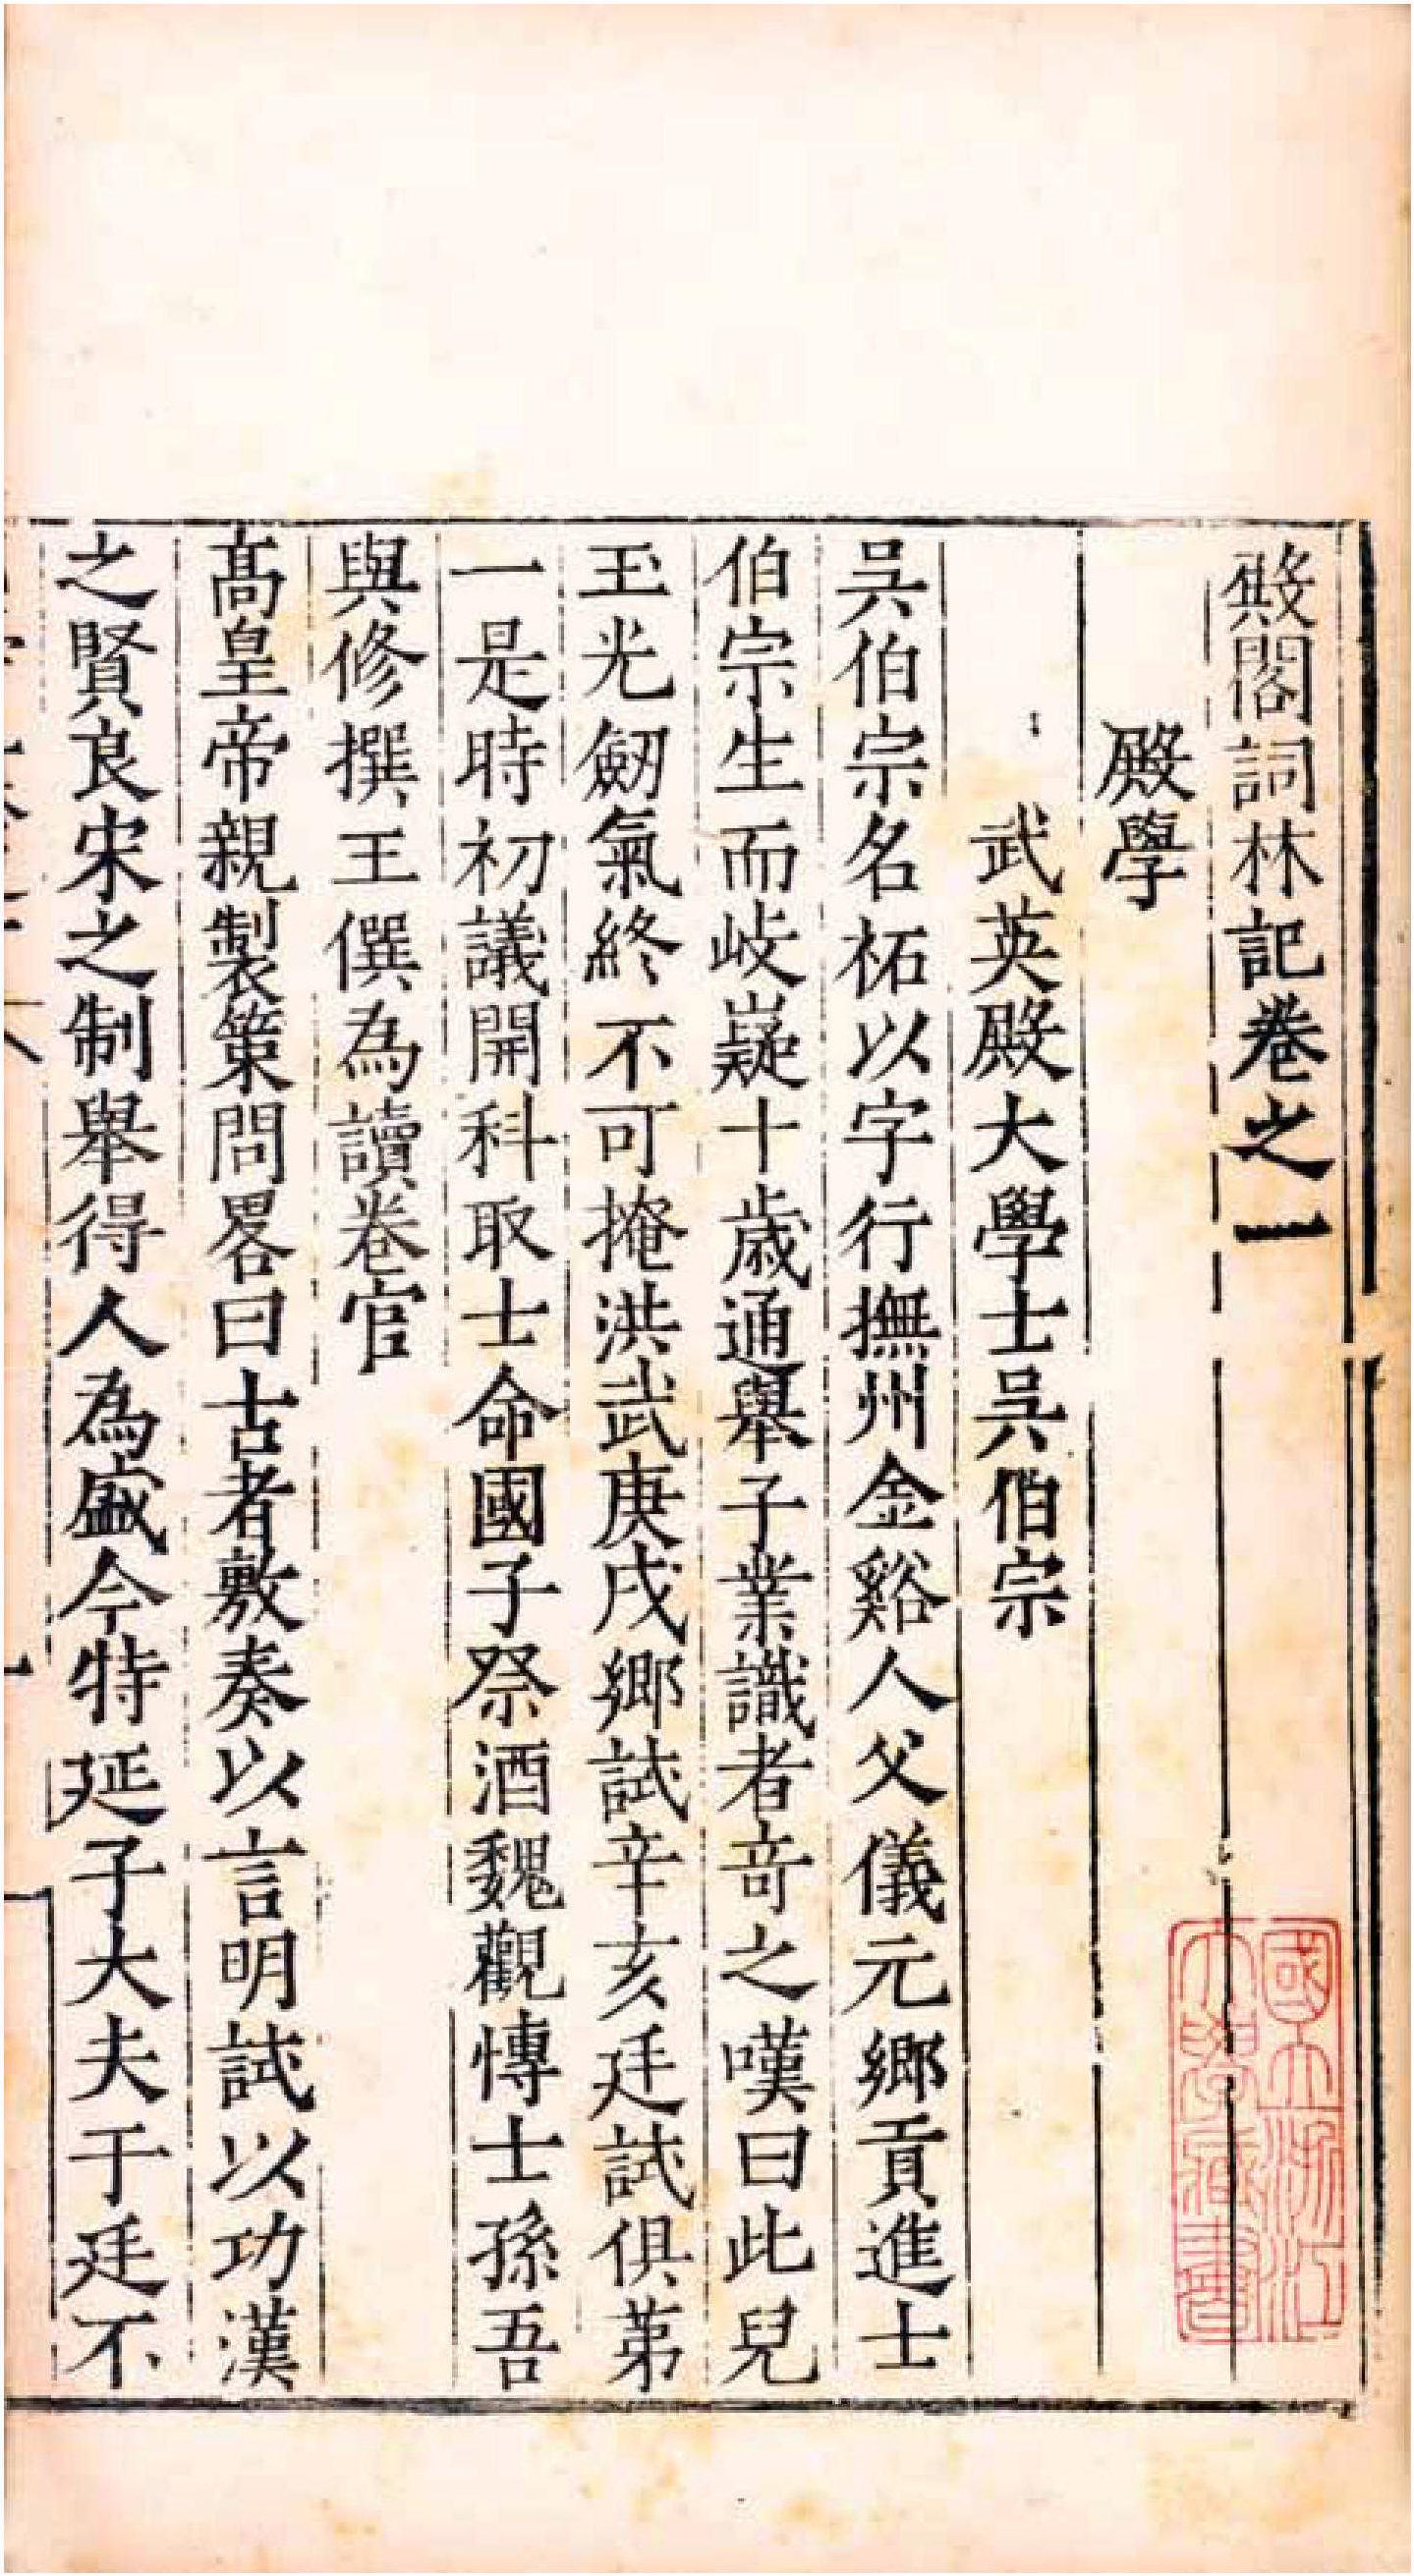 殿閣詞林記卷之一
殿學
武英殿大學士吳伯宗
吳伯宗名祏以字行撫州金谿人父儀元鄉貢進士
伯宗生而岐嶷十歲通舉子業識者竒之嘆曰此兒
玉光劒氣終不可掩洪武庚戌鄉試辛亥廷試俱苐
一是時初議開科取士命國子祭酒魏觀愽士孫吾
與修撰王僎為讀卷官
髙皇帝親製策問畧曰古者敷奏以言明試以功漢
之賢良宋之制舉得人為盛今特延子大夫于廷不
國立浙江
大學藏書